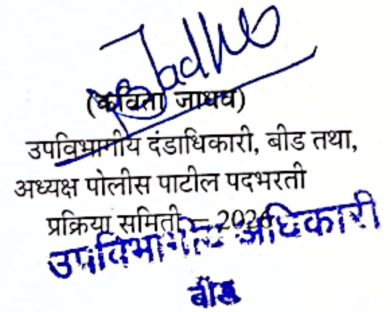 Jadhao
(कविता जाधव)
उपविभागीय दंडाधिकारी, बीड तथा,
अध्यक्ष पोलीस पाटील पदभरती
प्रक्रिया समिती – 2026
उपविभागीय अधिकारी
बीड